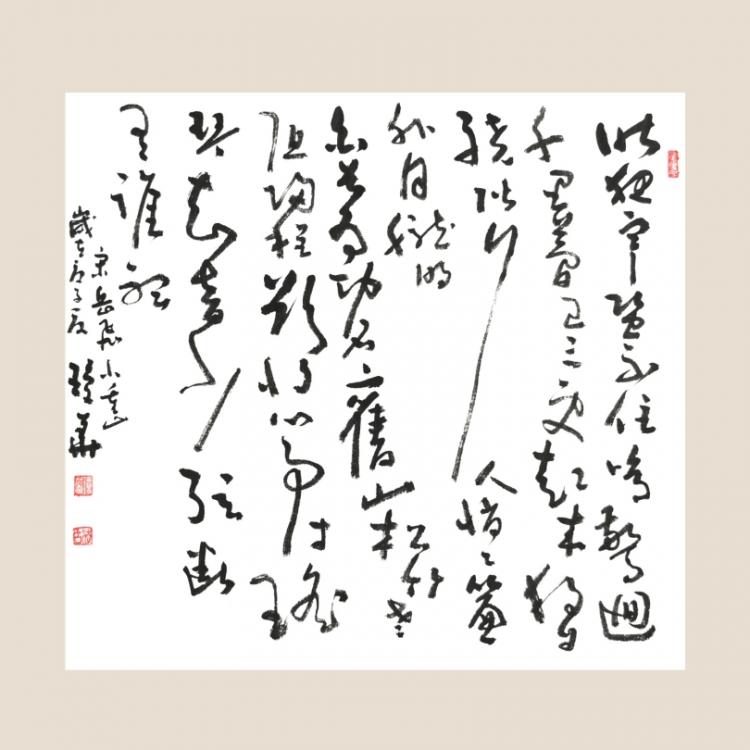 昨夜寒蛩不住鳴驚迴
千里夢已三更起来獨自
繞階行人悄〻簾
外月朧明
白首為功名舊山松竹老
阻歸程欲將心事付瑤
琴知音少弦斷
有誰聽
宋岳飛小重山
歲在庚子夏